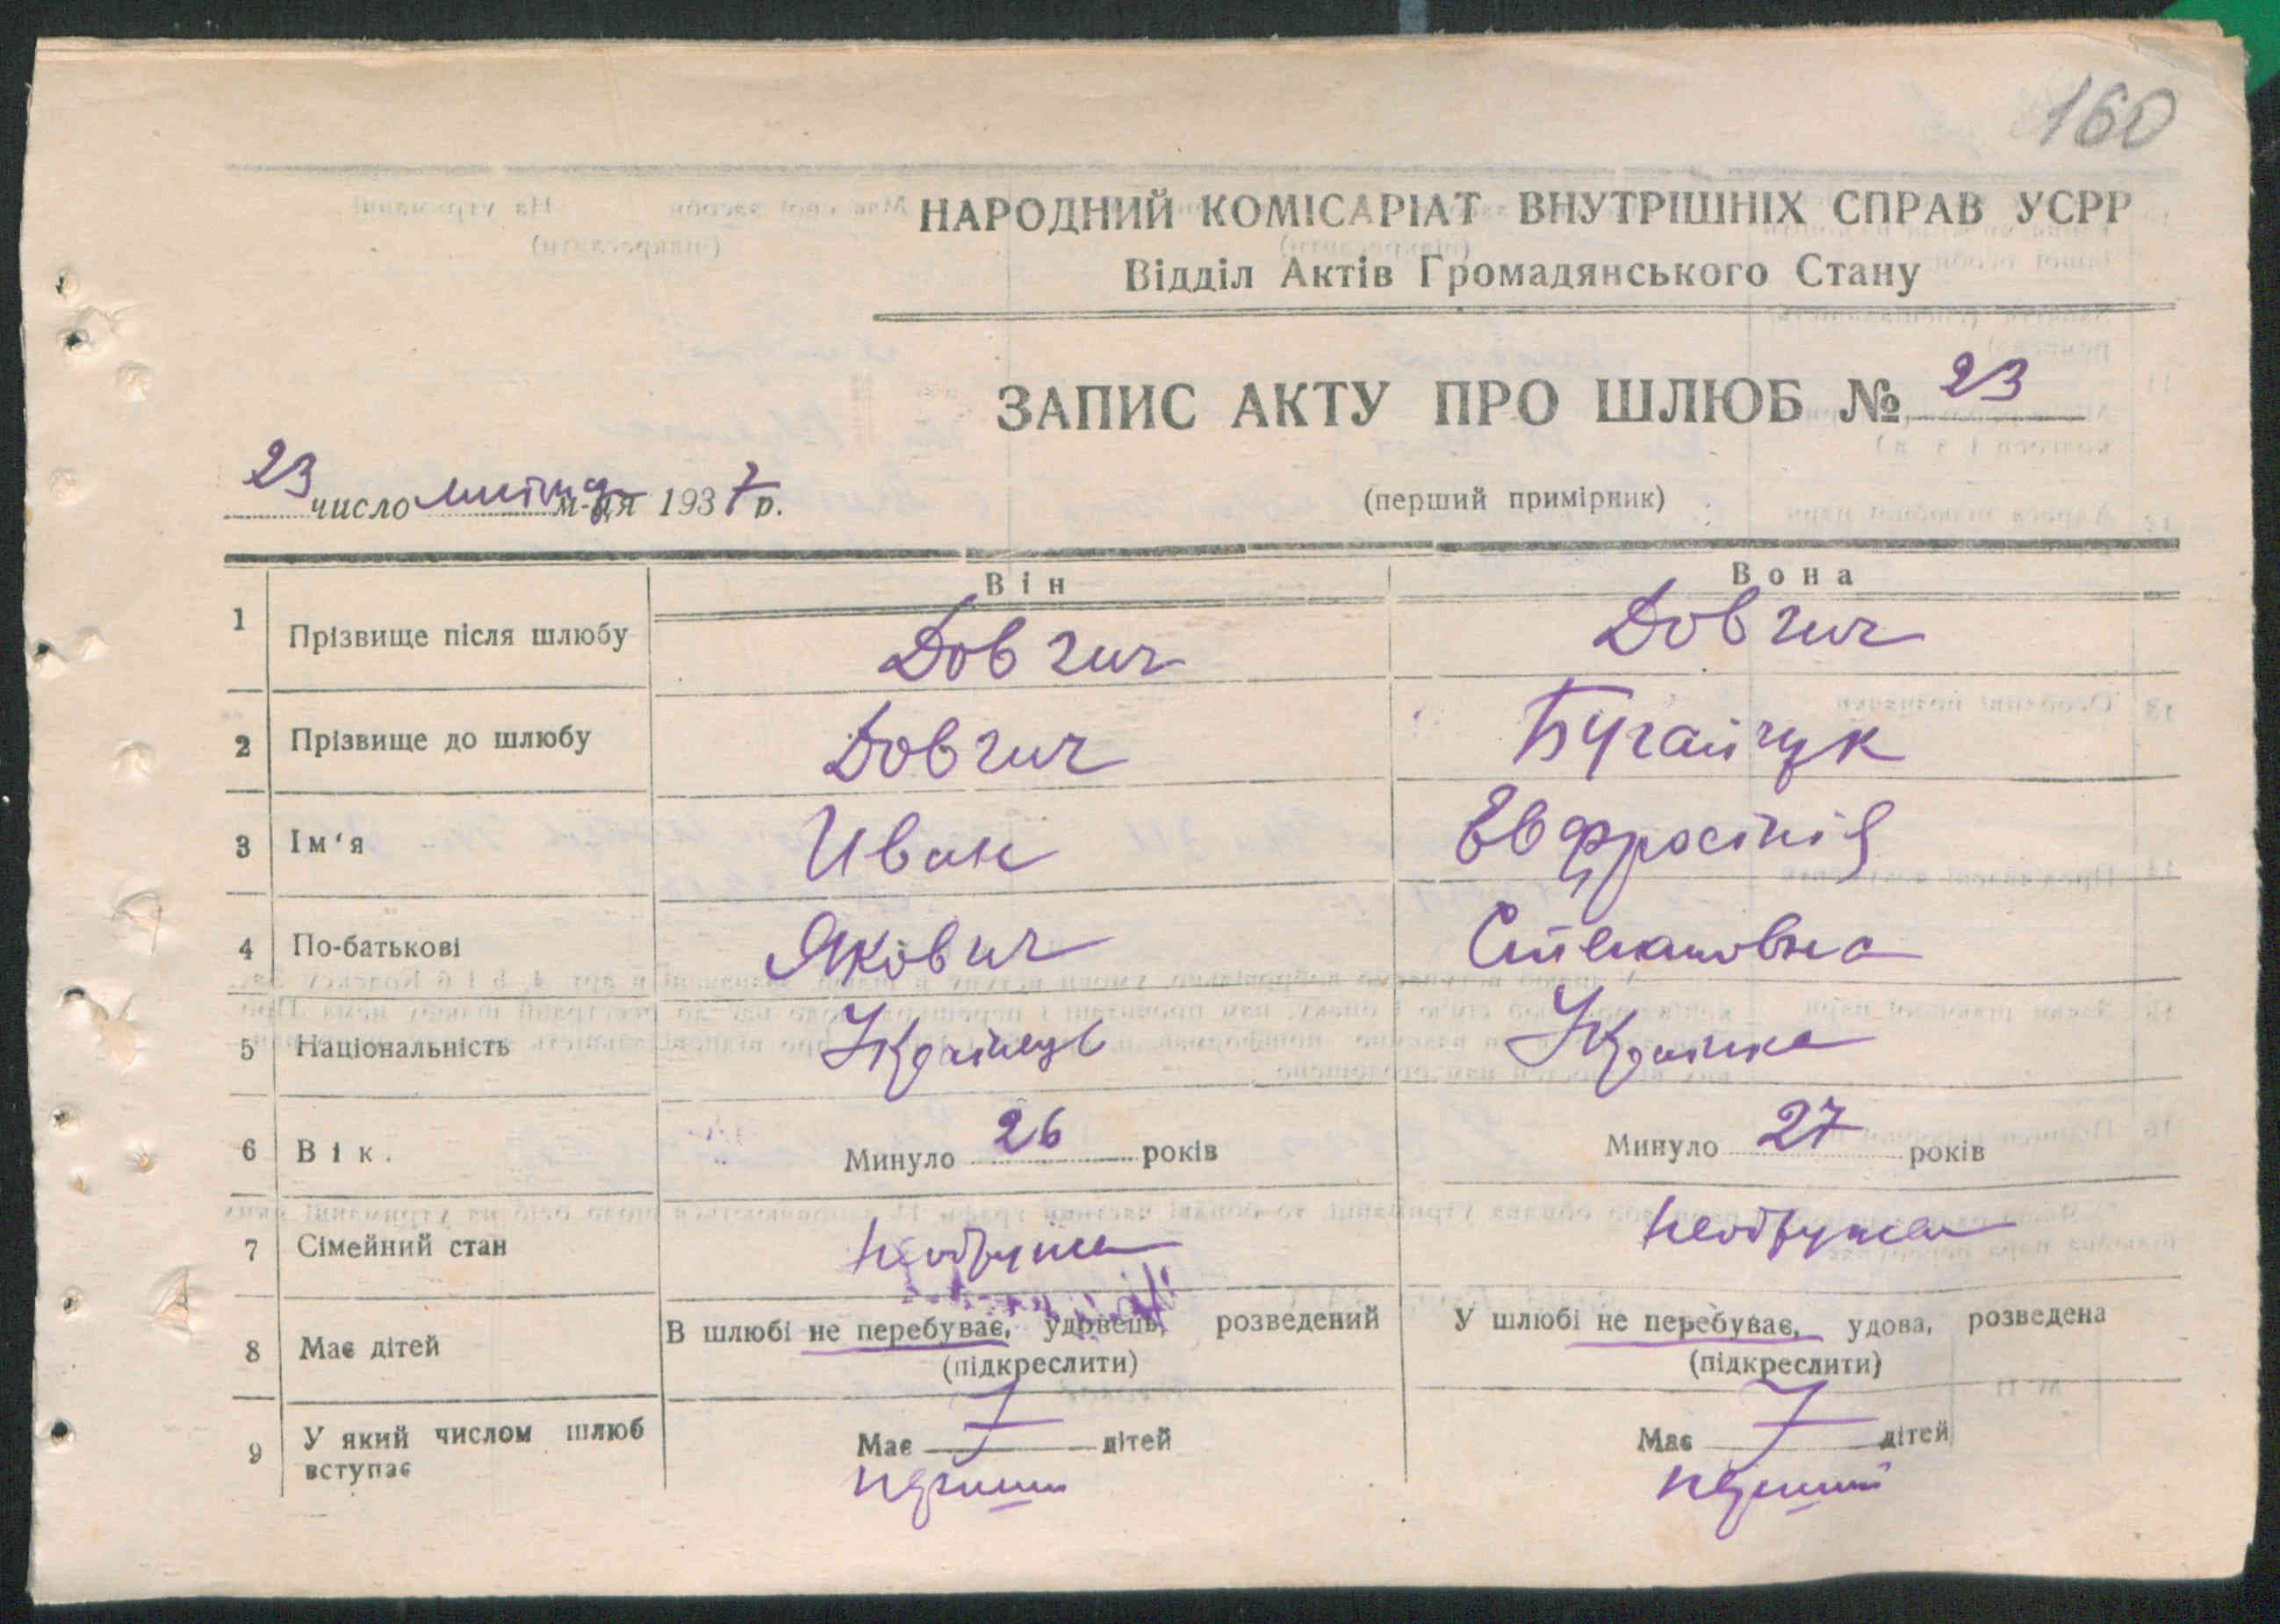 160
НАРОДНИЙ КОМІСАРІАТ ВНУТРІШНІХ СПРАВ УСРР
Відділ Актів Громадянського Стану
ЗАПИС АКТУ ПРО ШЛЮБ № 23
23 число м-ця 1937 р.
(перший примірник)
Він Вона
1 Прізвище після шлюбу Довгич Довгич
2 Прізвище до шлюбу Довгич Бугайчук
3 Ім'я Иван Евфросінія
4 По-батькові Якович Степановна
5 Національність Українець Українка
6 Вік. Минуло 26 років Минуло 27 років
7 Сімейний стан
8 Має дітей В шлюбі не перебуває, удовець, розведений У шлюбі не перебуває, удова, розведена
(підкреслити) (підкреслити)
9 У який числом шлюб Має дітей Має дітей
вступає перший перший